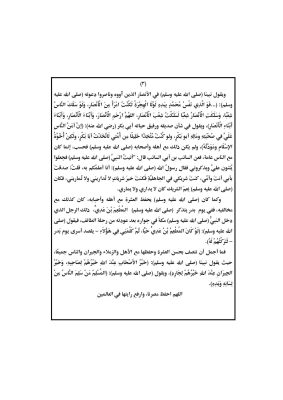 (٣)
ويقول نبينا (صلى الله عليه وسلم) في الأنصار الذين آووه وناصروا دعوته (صلى الله عليه
وسلم): (...فَوَ الَّذِي نَفْسُ مُحَمَّدٍ بِيَدِهِ لَوْلَا الْهِجْرَةُ لَكُنْتُ امْرَأً مِنَ الْأَنْصَارِ، وَلَوْ سَلَكَ النَّاسُ
شِعْبًا، وَسَلَكَتِ الْأَنْصَارُ شِعْبًا لَسَلَكْتُ شِعْبَ الْأَنْصَارِ، اللَّهُمَّ ارْحَمِ الْأَنْصَارَ، وَأَبْنَاءَ الْأَنْصَارِ، وَأَبْنَاءَ
أَبْنَاءِ الْأَنْصَارِ)، ويقول في شأن صديقه ورفيق حياته أبي بكر (رضي الله عنه): (إِنَّ أَمَنَّ النَّاسِ
عَلَيَّ فِي صُحْبَتِهِ وَمَالِهِ أَبُو بَكْرٍ، وَلَوْ كُنْتُ مُتَّخِذًا خَلِيلًا مِنْ أُمَّتِي لَاتَّخَذْتُ أَبَا بَكْرٍ، وَلَكِنْ أُخُوَّةُ
الإِسْلَامِ وَمَوَدَّتُهُ)، ولم يكن ذلك مع أهله وأصحابه (صلى الله عليه وسلم) فحسب، إنما كان
مع الناس عامة، فعن السائب بن أبي السائب قال: "أتيتُ النبيَّ (صلى الله عليه وسلم) فجعلوا
يُثنون عليَّ ويذكروني فقال رسولُ الله (صلى الله عليه وسلم): أنا أعلمُكم به، قلتُ: صدقتَ
بأبي أنت وأمي، كنتَ شريكي في الجاهلية فكنتَ خيرَ شريكٍ لا تُداريني ولا تُماريني، فكان
(صلى الله عليه وسلم) نعم الشريك كان لا يداري ولا يماري.
وكما كان (صلى الله عليه وسلم) يحفظ العشرة مع أهله وأصحابه، كان كذلك مع
مخالفيه، ففي يوم بدر يتذكر (صلى الله عليه وسلم) (المُطْعِمَ بْنَ عَدِيٍّ)، ذلك الرجل الذي
دخل النبيُّ (صلى الله عليه وسلم) مكة في جواره بعد عودته من رحلة الطائف، فيقول (صلى
الله عليه وسلم): (لَوْ كَانَ المُطْعِمُ بْنُ عَدِيٍّ حَيًّا، ثُمَّ كَلَّمَنِي فِي هَؤُلَاءِ – يقصد أسرى يوم بدر
– لَتَرَكْتُهُمْ لَهُ).
فما أجمل أن نتصف بحسن العشرة وحفظها مع الأهل والزملاء والجيران والناس جميعًا،
حيث يقول نبينا (صلى الله عليه وسلم): (خَيْرُ الأَصْحَابِ عِنْدَ اللَّهِ خَيْرُهُمْ لِصَاحِبِهِ، وَخَيْرُ
الْجِيرَانِ عِنْدَ اللَّهِ خَيْرُهُمْ لِجَارِهِ)، ويقول (صلى الله عليه وسلم): (الْمُسْلِمُ مَنْ سَلِمَ النَّاسُ مِنْ
لِسَانِهِ وَيَدِهِ).
اللهم احفظ مصرنا، وارفع رايتها في العالمين